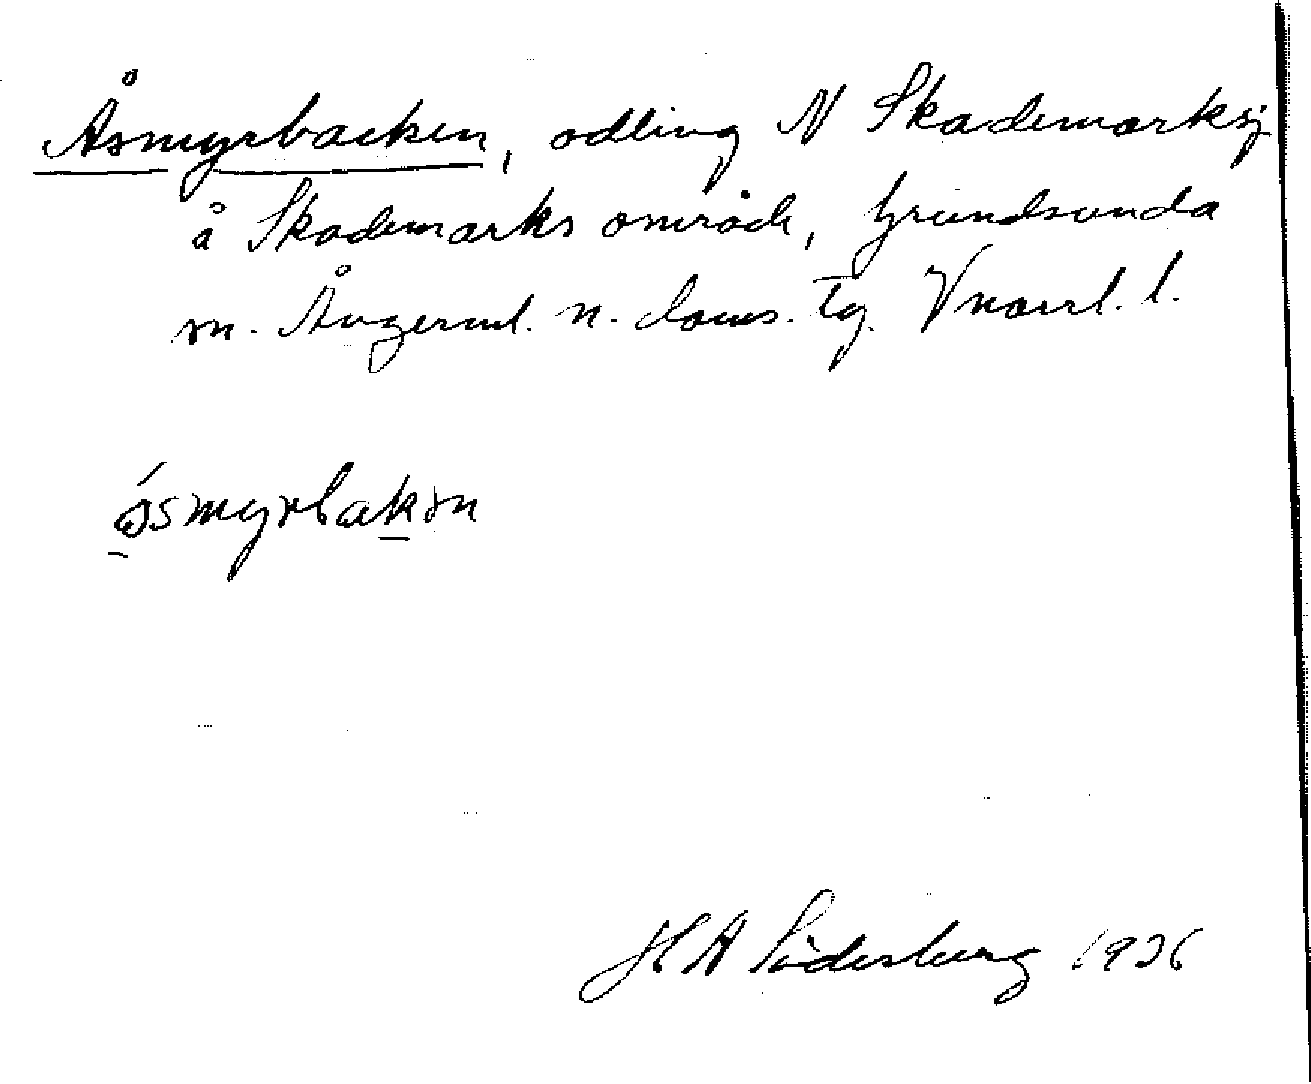 Åsmyrbacken, odling N Skademarksj
å Skademarks område, Grundsunda
sn. Ångerml. n. doms. tg. Vnorrl. l.
åsmyrbakən
H A Söderberg 1936